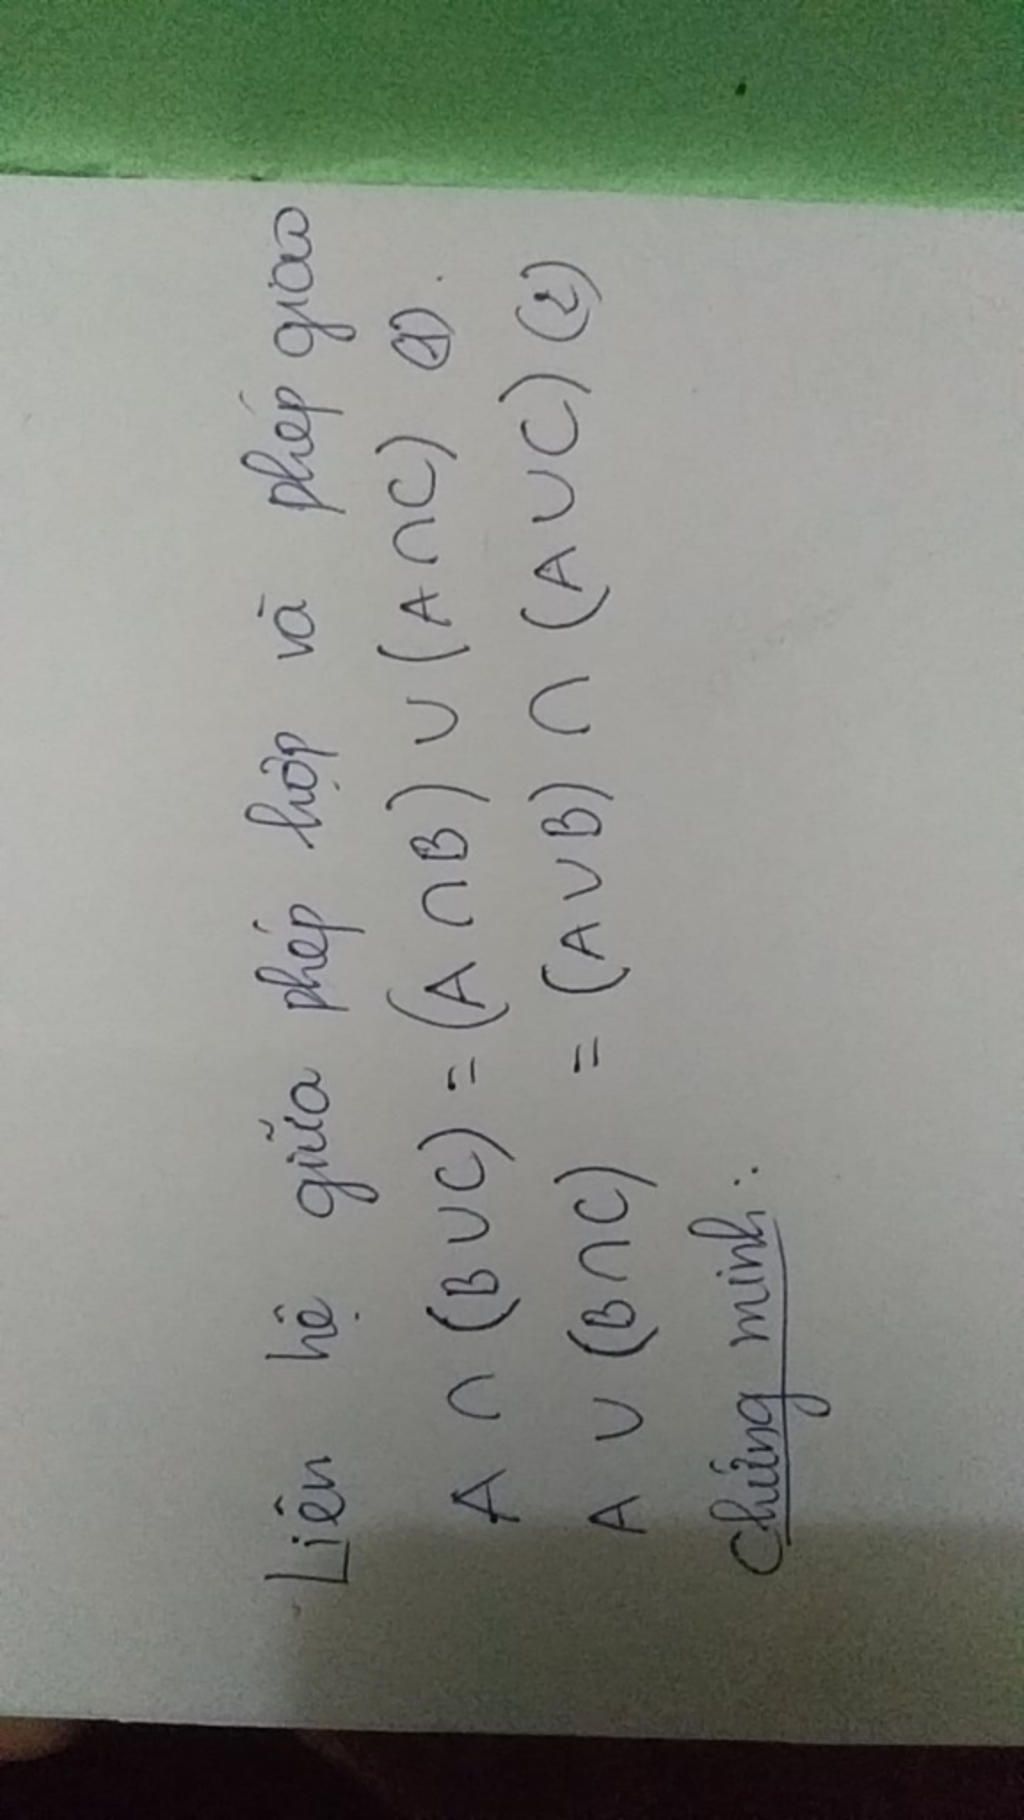 Liên hệ giữa phép hợp và phép giao
A ∩ (B ∪ C) = (A ∩ B) ∪ (A ∩ C) (1).
A ∪ (B ∩ C) = (A ∪ B) ∩ (A ∪ C) (2)
Chứng minh: